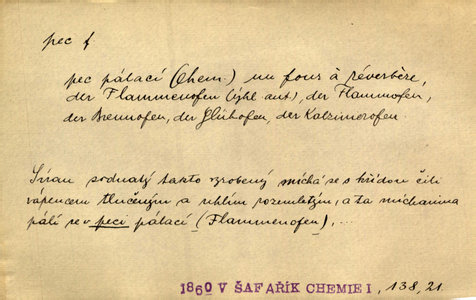 pec f
pec pálací (Chem.) un four à réverbère,
der Flammenofen (týhl aut), der Flammofen,
der Brennofen, der Glühofen, der Kalzinierofen
Síran sodnatý takto vyrobený míchá se s křídou čili
vápencem tlučeným a uhlím rozemletým, a ta míchanina
pálí se v peci pálací (Flammenofen), ...
1860 V ŠAFAŘÍK CHEMIE I, 138, 21.